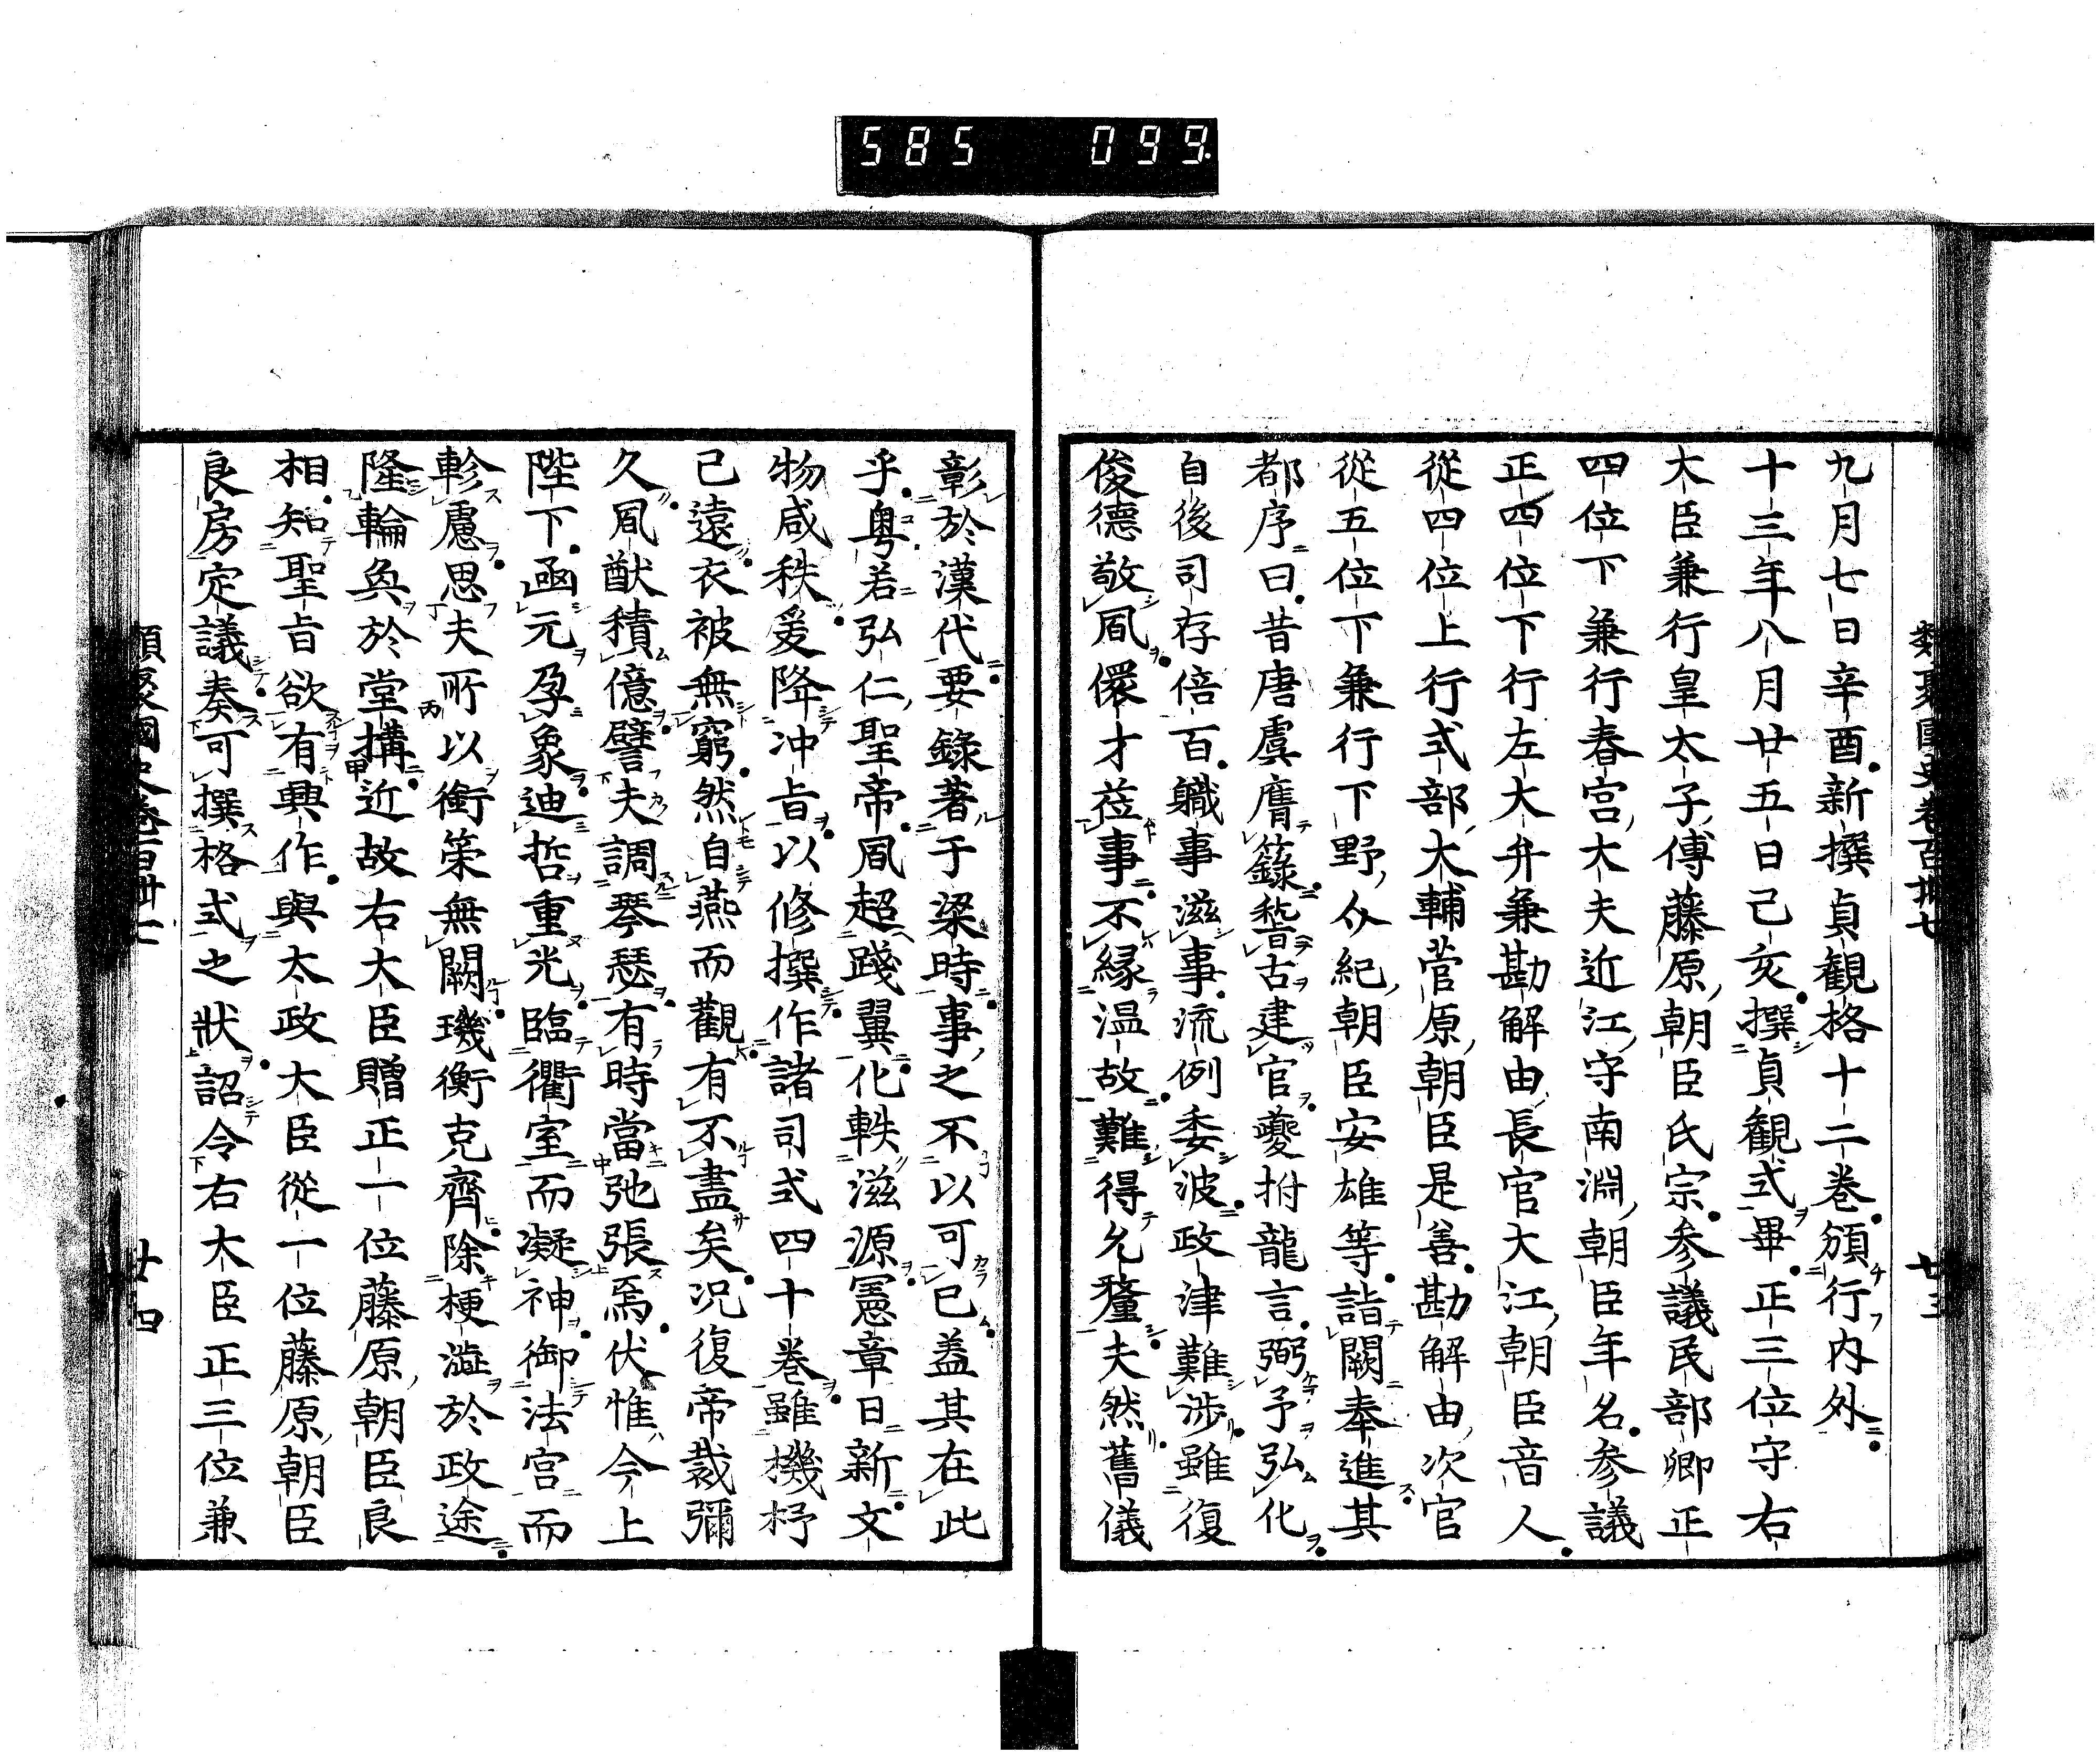 585 099
類聚國史卷百卌七 廿三
九月七日辛酉新撰貞観格十二卷頒行内外
十三年八月廿五日己亥撰貞観式畢正三位守右
大臣兼行皇太子傅藤原朝臣氏宗参議民部卿正
四位下兼行春宮大夫近江守南淵朝臣年名参議
正四位下行左大弁兼勘解由長官大江朝臣音人
從四位上行式部大輔菅原朝臣是善勘解由次官
從五位下兼行下野介紀朝臣安雄等詣闕奉進其
都序曰昔唐虞膺籙稽古建官夔拊龍言弼予弘化
自後司存倍百職事滋事流例委波政津難渉雖復
俊德敬風儇才莅事不縁温故難得允釐夫然舊儀
彰於漢代要錄著于梁時事之不以可已盖其在此
乎粤若弘仁聖帝風超踐翼化軼滋源憲章日新文
物咸秩爰降冲旨以修撰作諸司式四十卷雖機杼
己遠衣被無窮然自燕而觀有不盡矣況復帝裁彌
久風猷積億譬夫調琴瑟有時當弛張焉伏惟今上
陛下函元孕象迪哲重光臨衢室而凝神御法宮而
軫慮思夫所以銜策無闕璣衡克齊除梗澁於政途
隆輪奐於堂搆近故右大臣贈正一位藤原朝臣良
相知聖旨欲有興作與太政大臣從一位藤原朝臣
良房定議奏可撰格式之狀詔令右大臣正三位兼
類聚國史卷百卌七 廿四